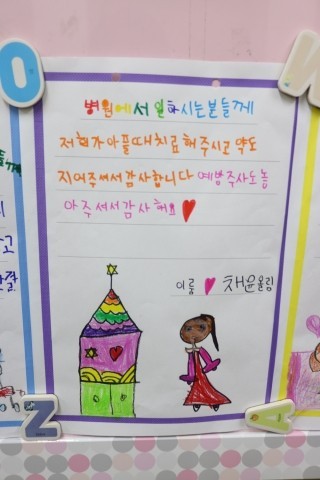 병원에서 일하시는분들께
저희가아플때치료해주시고약도
지어주셔서감사합니다 예방주사도놓
아주셔서감사해요♥
이름 ♥ 채윤올림
O
Z
A